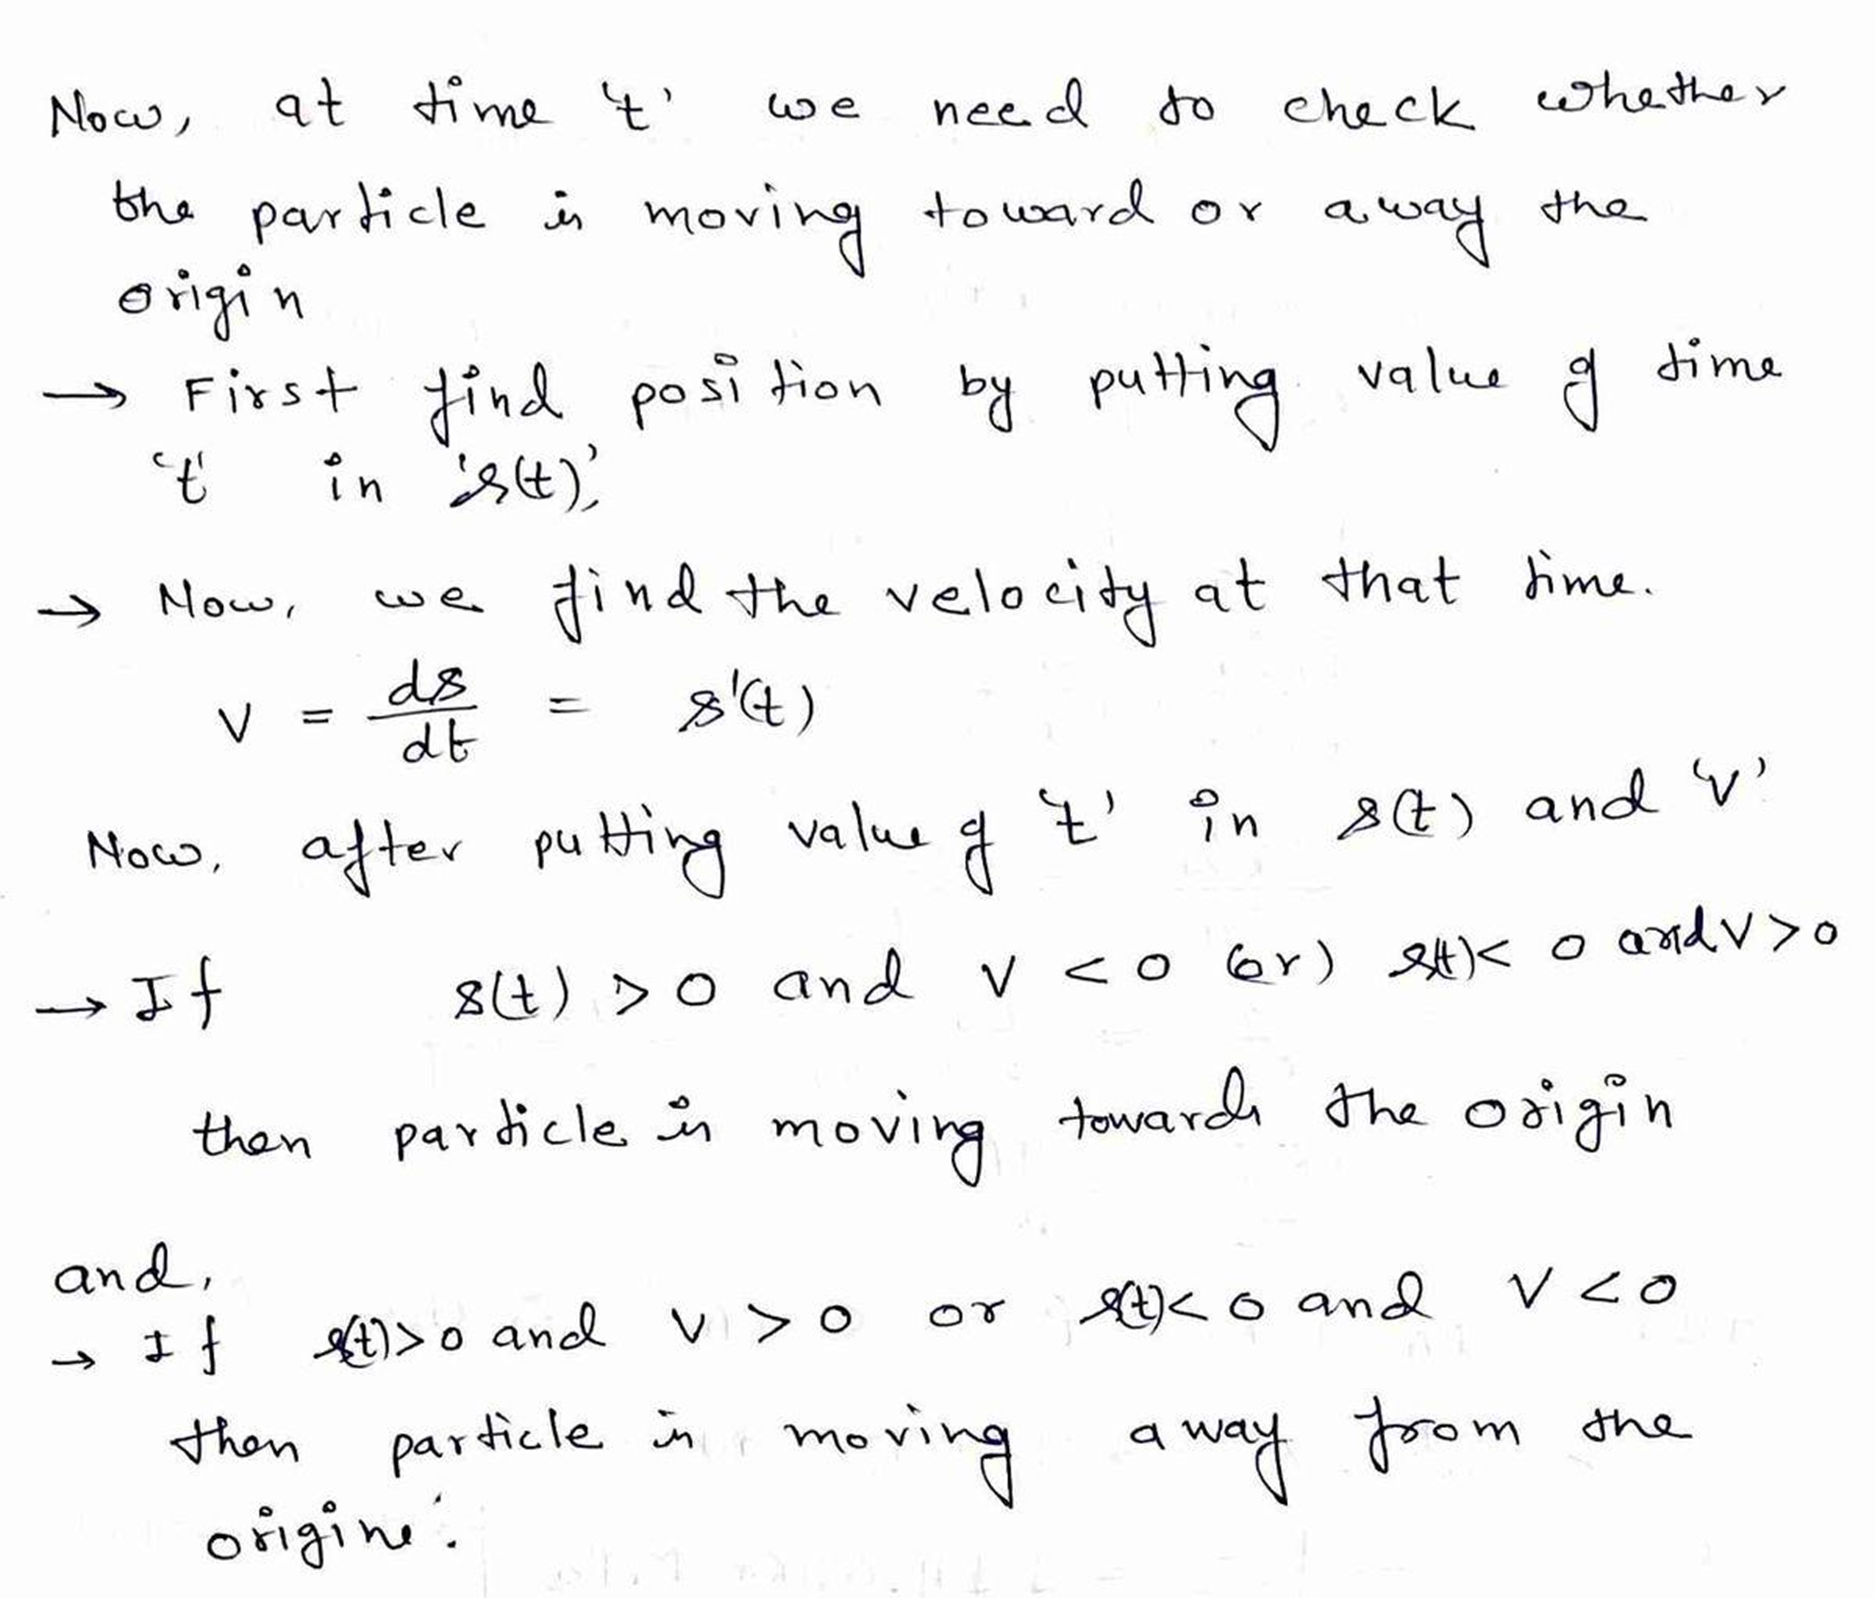 Now, at time 't' we need to check whether
the particle is moving toward or away the
origin
→ First find position by putting value of time
't' in 's(t)',
→ Now, we find the velocity at that time.
v = ds/dt = s'(t)
Now, after putting value of 't' in s(t) and 'v'
→ If s(t) > 0 and v < 0 (or) s(t) < 0 and v > 0
then particle is moving towards the origin
and,
→ If s(t) > 0 and v > 0 or s(t) < 0 and v < 0
then particle is moving away from the
origine.